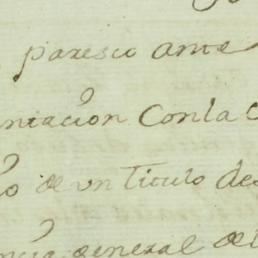 paresco ante
ntacion Con la
o de un titulo de
ncia general de